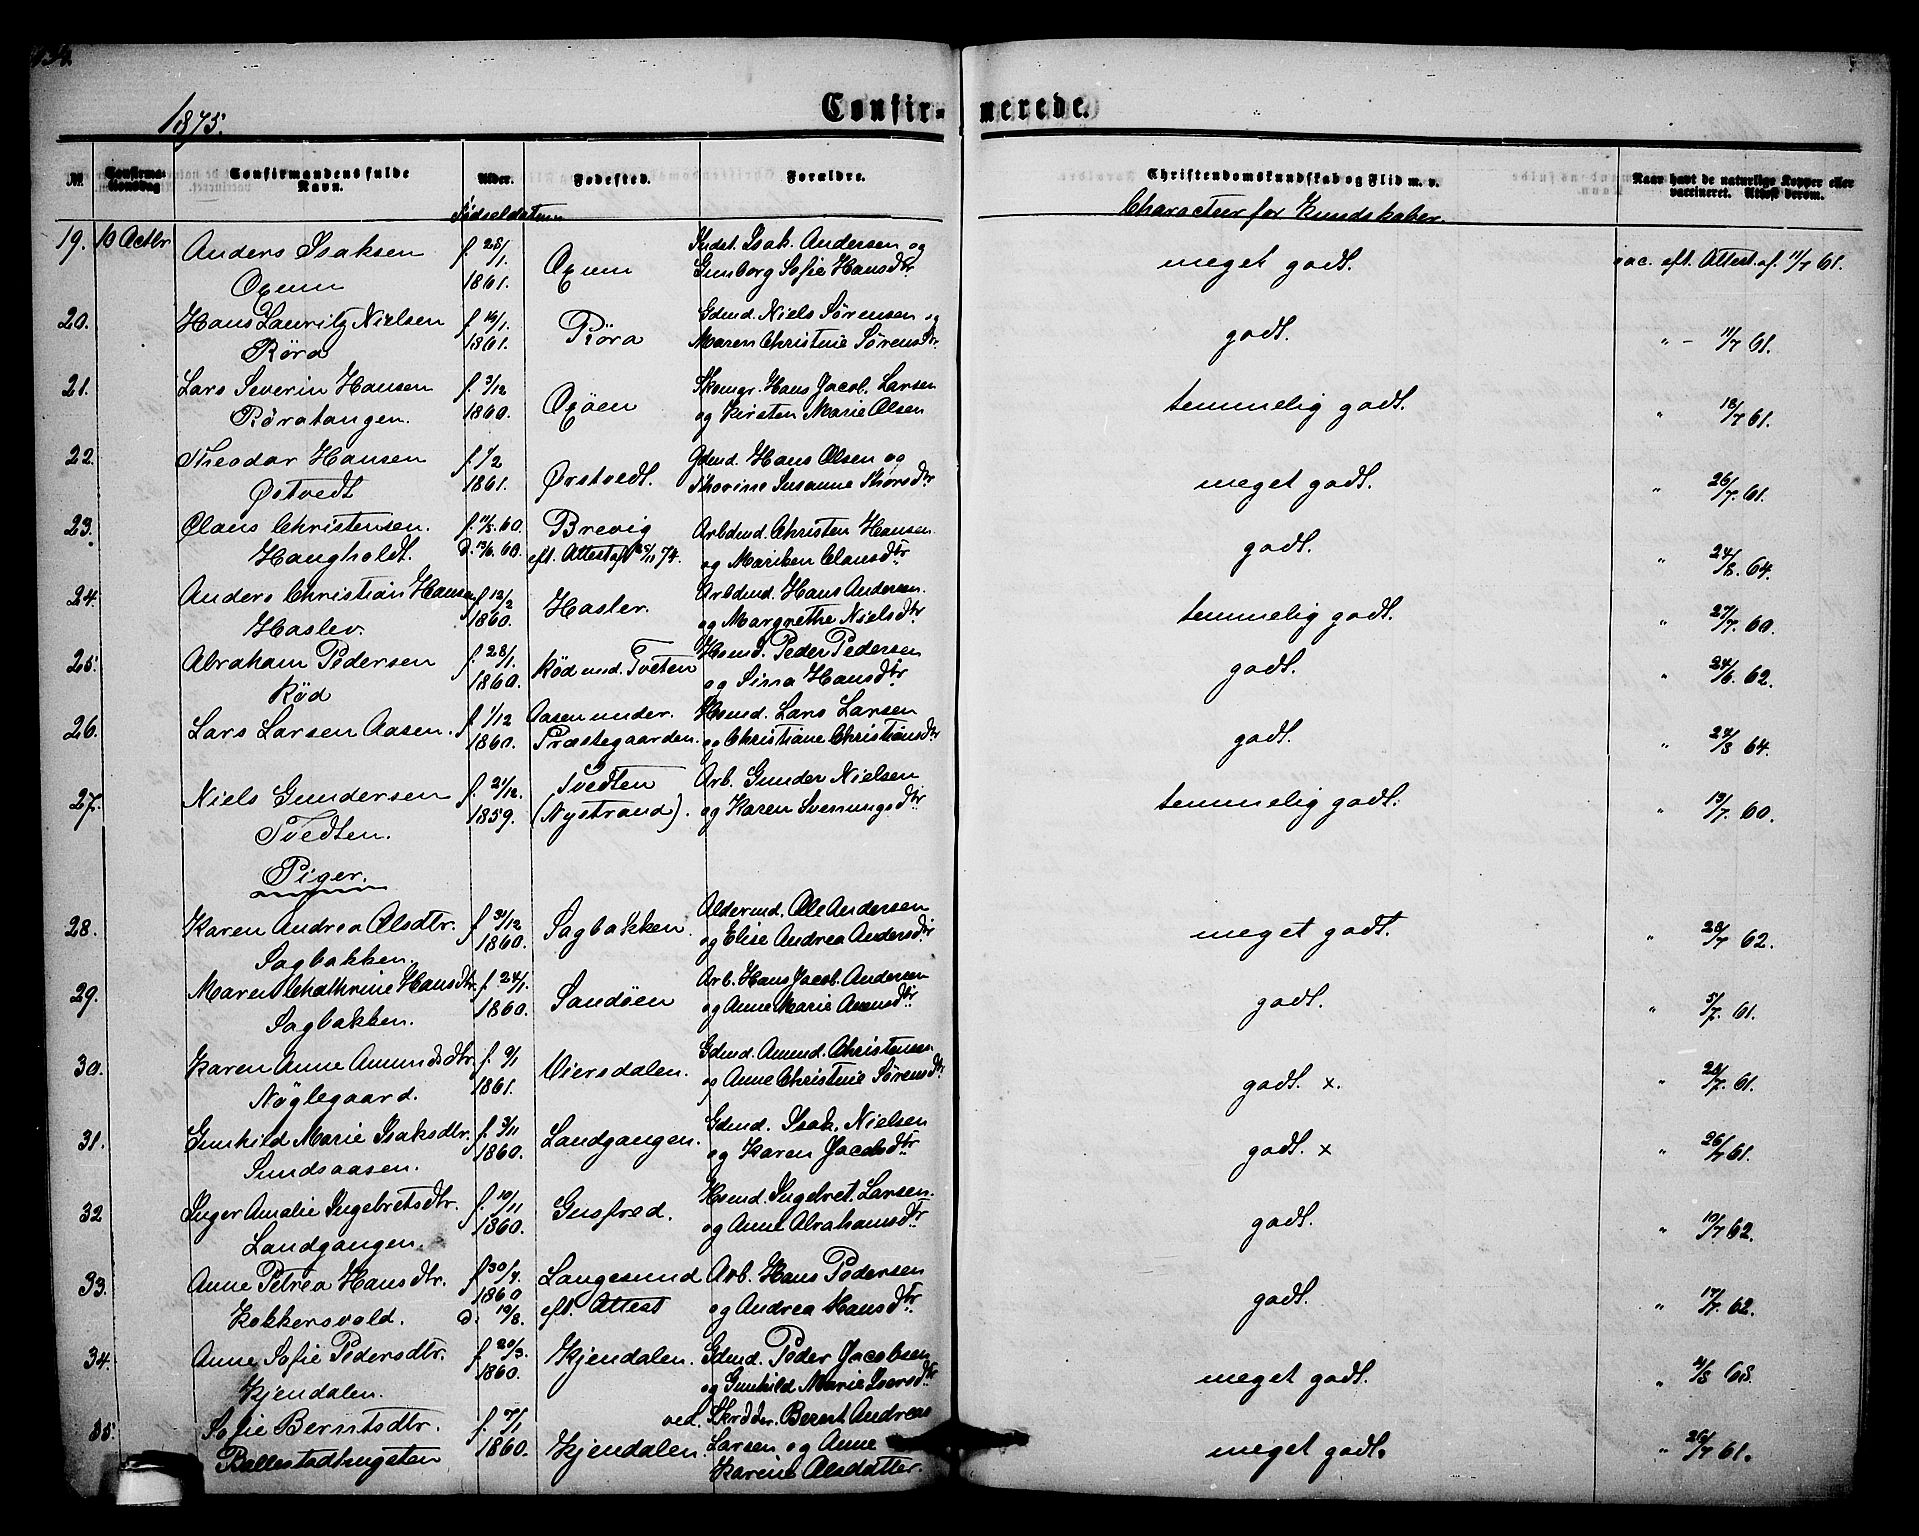 1875.
Confir-merede.
No. Confirmationsdag Confirmandens fulde Navn. Alder. Fødested. Forældre. Christendomskundskab og Flid m. v. Naar havt de naturlige Kopper eller vaccineret. Attest derom.
Fødselsdatum Characteer for Kundskaber.
19. 10 Octbr Anders Isaksen f. 28/1 Indst. Isak Andersen og
Oxum 1861. Oxum Gunborg Sofie Hansdtr meget godt. vac. eft. Attest af 11/7 61.
20. Hans Lauritz Nielsen f. 19/1 Gdmd. Niels Sørensen og
Röra 1861. Röra Maren Christine Sørensdtr. godt. " - 11/7 61.
21. Lars Severin Hansen f. 3/12 Skomgr. Hans Jacob Larsen
Röratangen. 1860. Oxöen og Kirsten Marie Olsen temmelig godt. " 18/7 61.
22. Theodor Hansen f. 1/2 Gdmd. Hans Olsen og
Østvedt 1861. Ørstvedt. Thorine Susanne Thorsdtr meget godt. " 26/7 61.
23. Claus Christensen. f. 11/5 60. Brevig Arbdmd. Christen Hansen
Haugholdt. d. 13/6 60. eft. Attest af 25/11 74. og Mariken Clausdtr godt. " 24/8 64.
24. Anders Christian Hansen f. 12/2 Arbdmd. Hans Andersen
Haslev. 1860. Haslev. og Margrethe Nielsdtr temmelig godt. " 27/7 60.
25. Abraham Pedersen f. 28/1 Hsmd. Peder Pedersen
Rød 1860. Rød und. Tveten og Sina Hansdtr godt. " 24/6 62.
26. Lars Larsen Aasen. f. 1/12 Aasen under Hsmd. Lars Larsen
1860. Præstegaarden. og Christiane Christiansdtr godt. " 24/8 64.
27. Niels Gundersen f. 21/12 Tvedten Arb. Gunder Nielsen
Tvedten. 1859. (Nystrand). og Karen Svenningsdtr temmelig godt. " 13/7 60.
Piger.
28. Karen Andrea Olsdtr. f. 31/12 Aldermd. Ole Andersen
Sagbakken. 1860. Sagbakken. og Elise Andrea Andersdtr meget godt. " 28/7 62.
29. Maren Chathrine Hansdtr. f. 24/1 Arb. Hans Jacob Andersen
Sagbakken. 1860. Sandöen og Anne Marie Amundsdtr godt. " 5/7 61.
30. Karen Anne Amundsdtr f. 9/1 Gdmd. Amund Christensen
Nøglegaard. 1861. Viersdalen. og Anne Christine Sørensdtr. godt. x. " 28/7 61.
31. Gunhild Marie Isaksdtr. f. 3/11 Gdmd. Isak Nielsen
Sundsaasen. 1860. Landgangen. og Karen Jacobsdtr godt. x " 26/7 61.
32 Inger Amalie Ingebretsdtr. f. 10/11 Hsmd. Ingebret Larsen.
Landgangen. 1860. Gusfred. og Anne Abrahamsdtr godt. " 10/7 62.
33. Anne Petrea Hansdtr. f. 30/4 Langesund Arb. Hans Pedersen
Kokkersvold. 1860 d. 19/8. eft. Attest og Andrea Hansdtr godt. " 17/7 62.
34. Anne Sofie Pedersdtr. f. 20/3. Kjendalen. Gdmd. Peder Jacobsen
Kjendalen. 1860. og Gunhild Marie Iversdtr meget godt. " 4/8 68.
35. Sofie Berntsdtr. f. 7/1 ved. Skrdder. Bernt Andreas
Ballestadhugsten 1860. Kjendalen Larsen og Anne meget godt. " 26/7 61.
Karine Olsdatter.